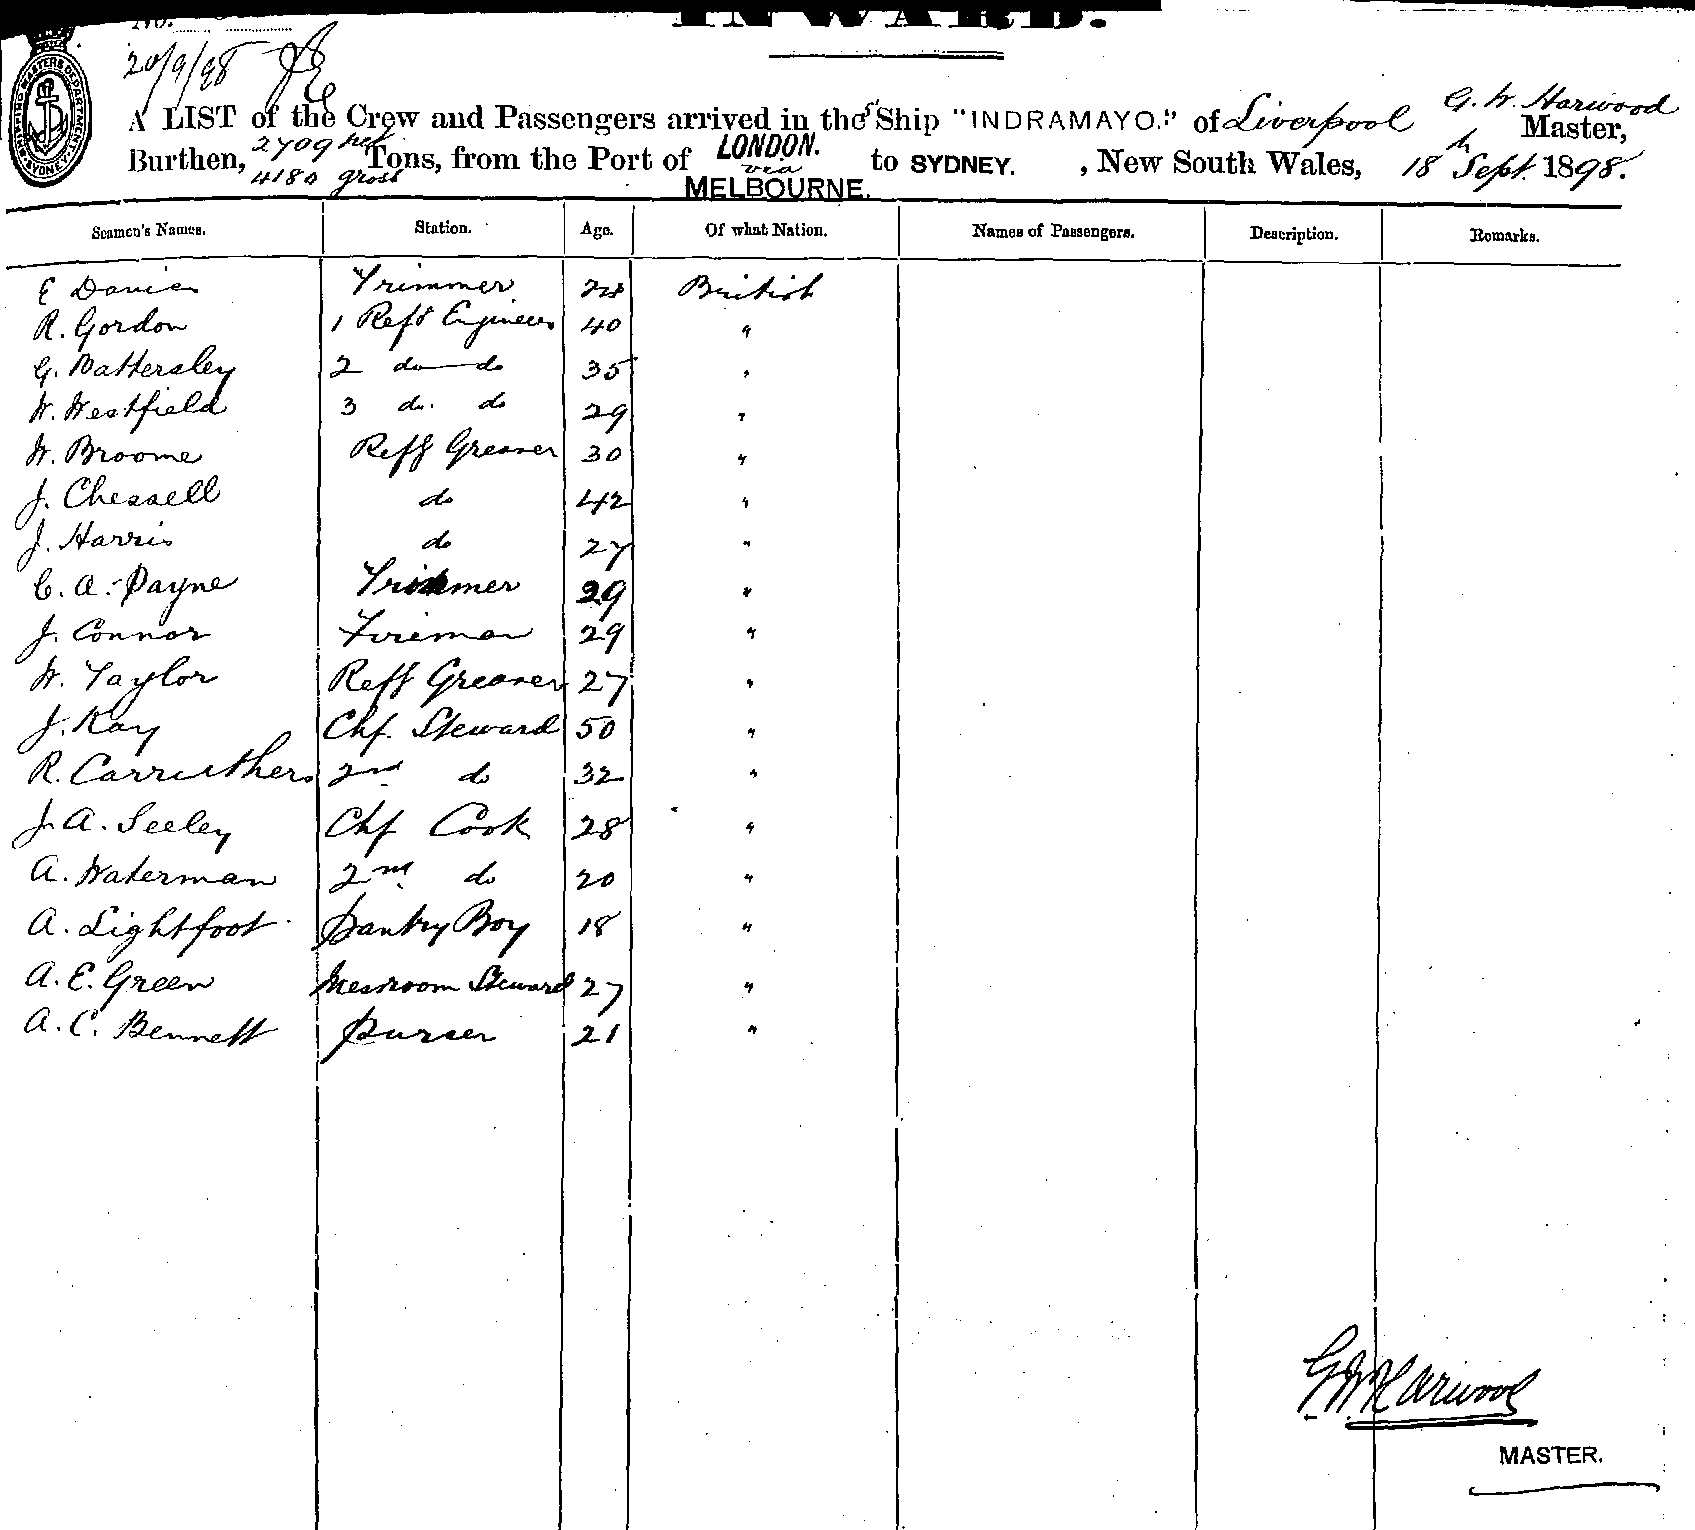 No.
INWARD.
20/9/98
SHIPPING MASTERS DEPARTMENT SYDNEY
A LIST of the Crew and Passengers arrived in the SS Ship "INDRAMAYO." of Liverpool G. W. Harwood Master,
Burthen, 2709 net 4180 gross Tons, from the Port of LONDON. via MELBOURNE. to SYDNEY. , New South Wales, 18th Sept. 1898.
Seamen's Names. Station. Age. Of what Nation. Names of Passengers. Description. Remarks.
E Davies Trimmer 24 British
R. Gordon 1 Refr Engineer 40 "
G. Battersley 2 do do 35 "
W. Westfield 3 do. do 29 "
W. Broome Reff Greaser 30 "
J. Chessell do 42 "
J. Harris do 27 "
C. A. Payne Trimmer 29 "
J. Connor Fireman 29 "
W. Taylor Reff Greaser 27 "
J. Kay Chf. Steward 50 "
R. Carruthers 2nd do 32 "
J. A. Seeley Chf Cook 28 "
A. Waterman 2nd do 20 "
A. Lightfoot Pantry Boy 18 "
A. E. Green Messroom Steward 27 "
A. C. Bennett Purser 21 "
G. W. Harwood
MASTER.